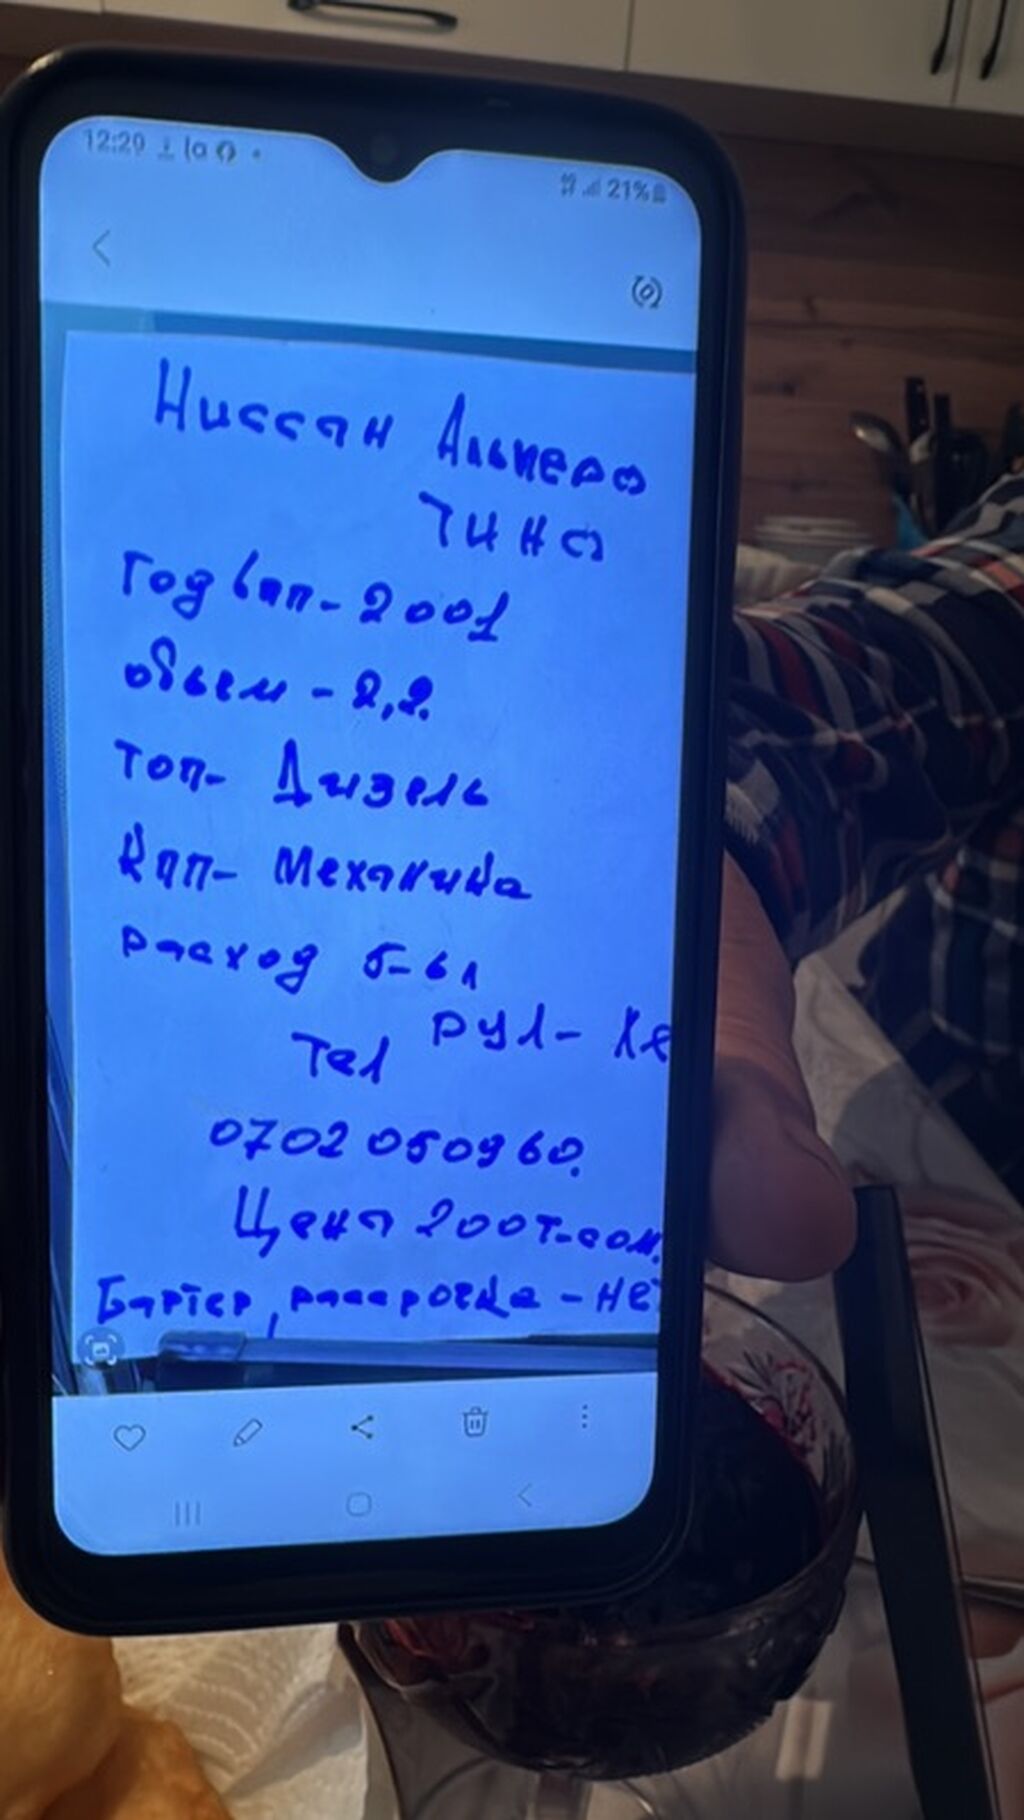 12:20
21%
Ниссан Альмера
Тино
Год вып- 2001
объем - 2,2.
Топ- Дизель
Кпп- механика
расход 5-6л
рул-
Tel
0702 050960.
Цена 200т-сом.
Бартер, рассрочка - нет